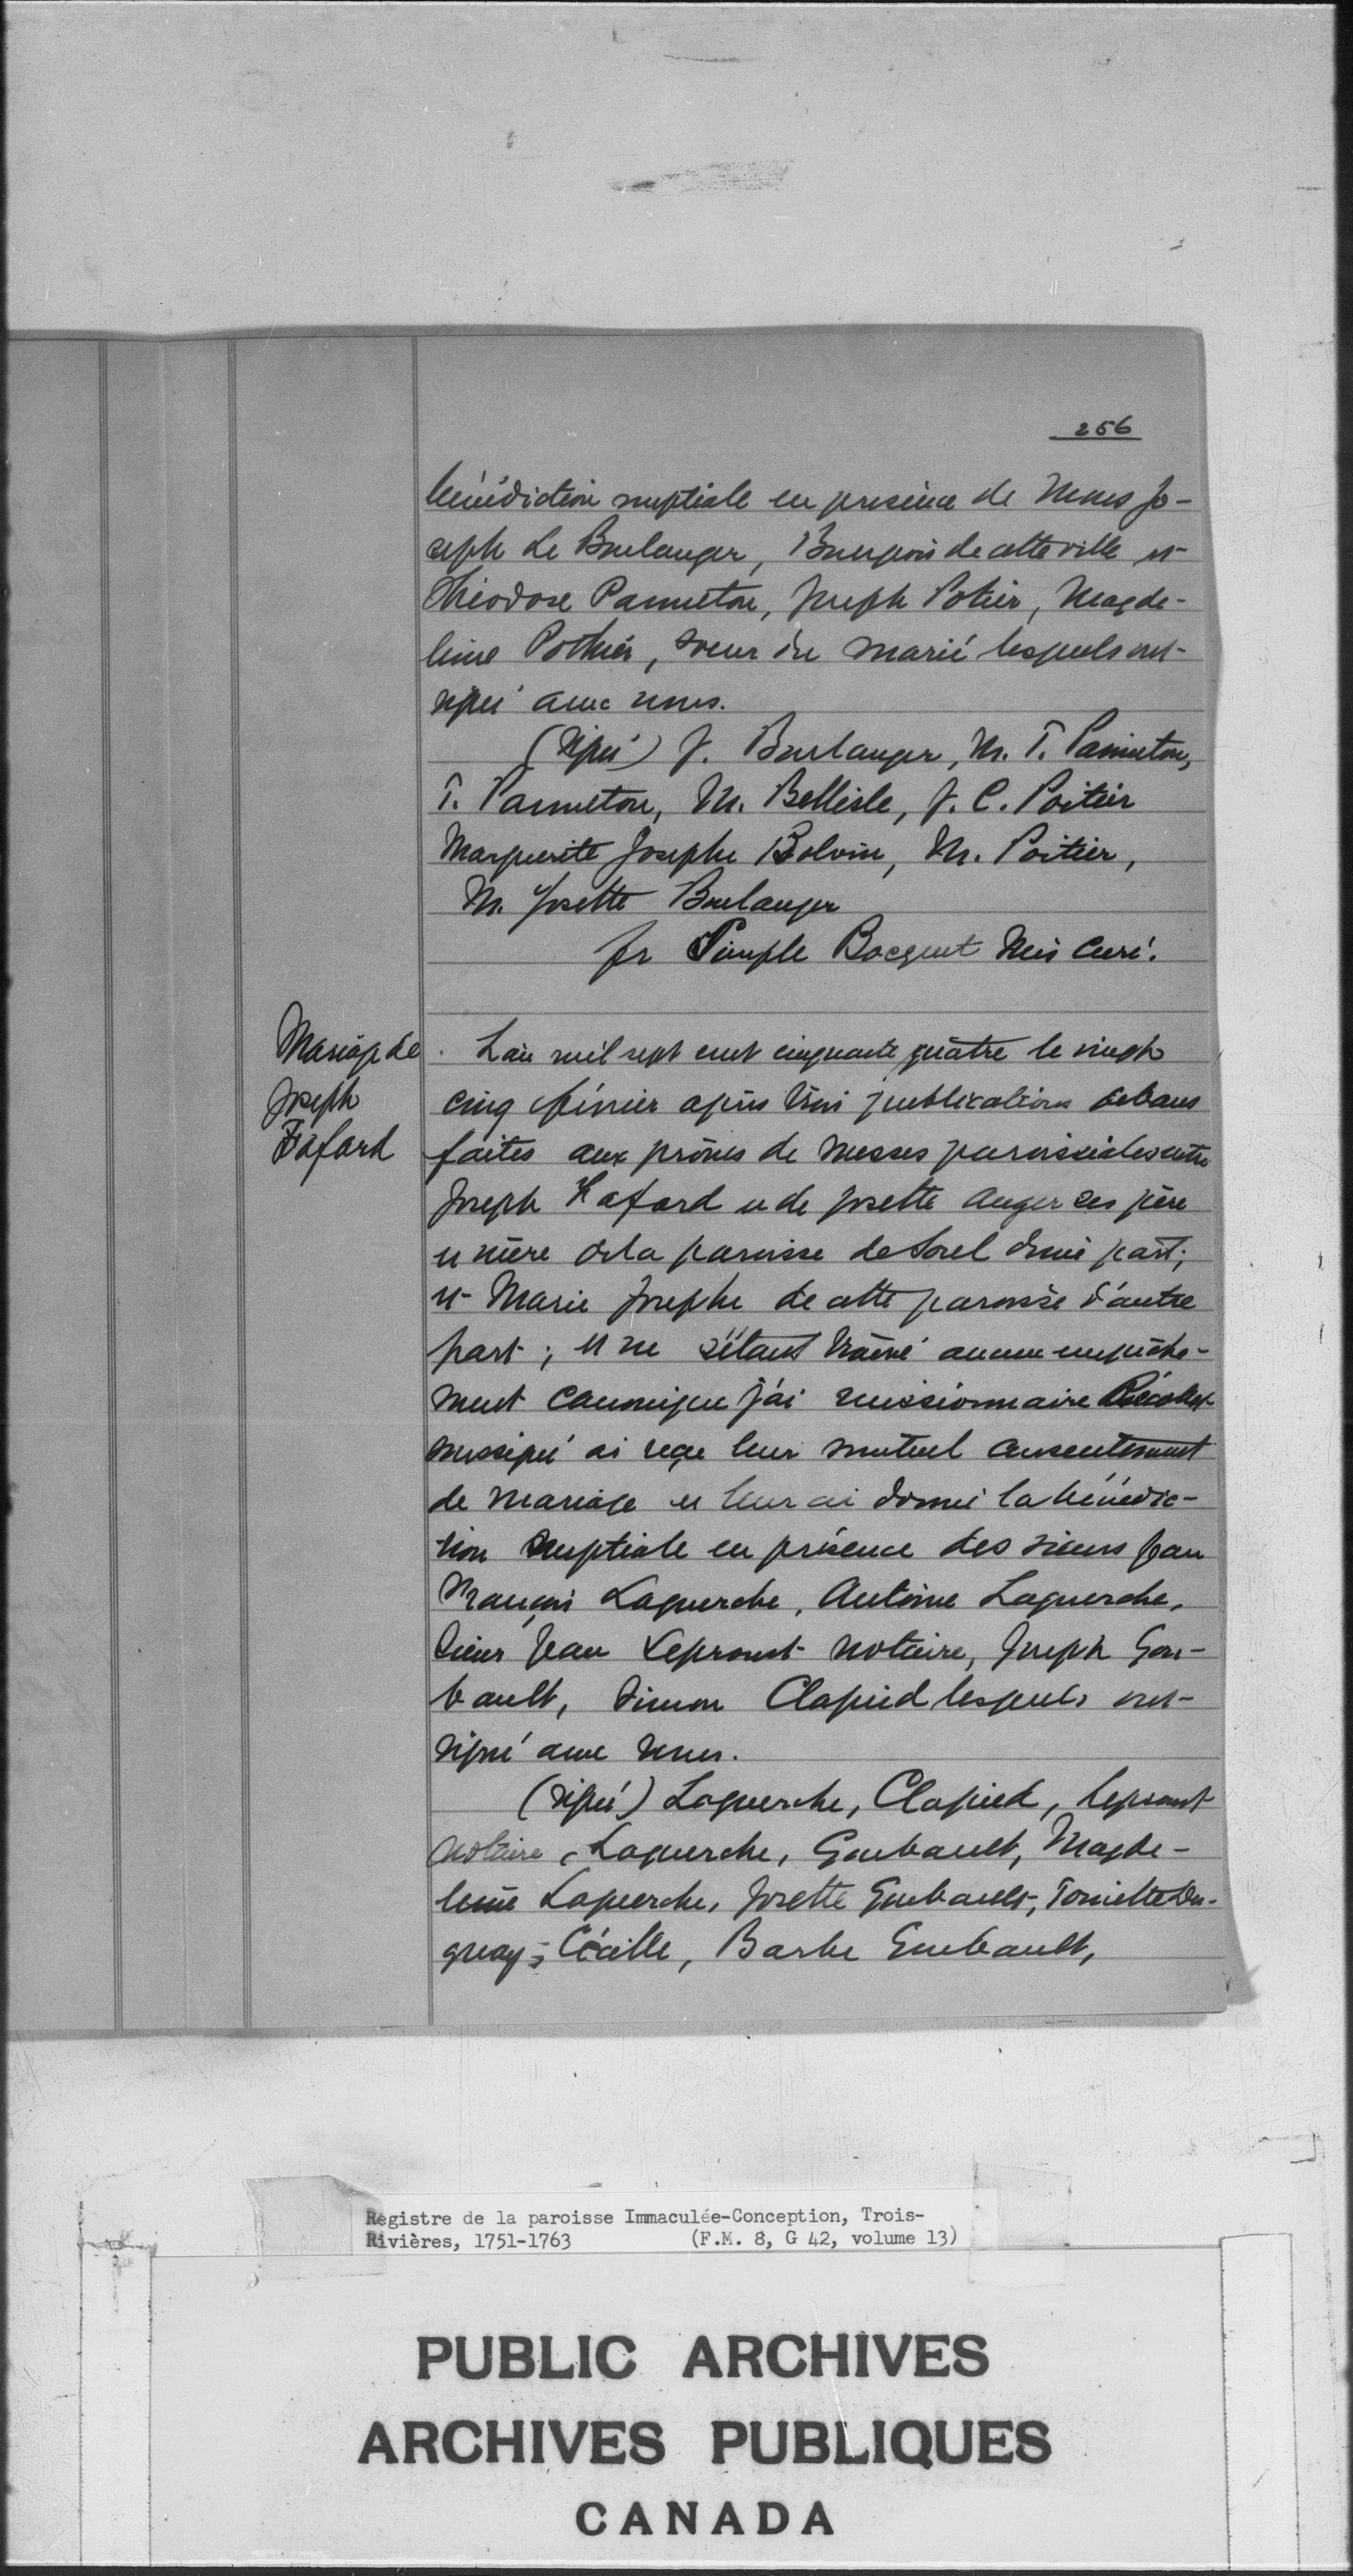 256
bénédiction nuptiale en presence de Mons Jo-
seph Le Boulanger, Bourgois de cette ville et
Théodose Panneton, Joseph Potier, Magde-
leine Pothier, soeur du marié lesquels ont
signé avec nous.
(Signé) J. Boulanger, M. T. Panneton,
T. Panneton, M. Bellisle, J. C. Poitier
Marguerite Josephe Bolvin, M. Poitier,
M. Josette Boulanger
fr Simple Bocquet Mis Curé.
Mariage de
Joseph
Fafard
L'an mil sept cent cinquante quatre le vingt
cinq février après trois publications de bans
faites aux prônes de messes paroissiales entre
Joseph Fafard et de Josette Auger ses père
et mère de la paroisse de Sorel d'une part;
et Marie Josephe de cette paroisse d'autre
part; et ne s'étant trouvé aucun empêche-
ment canonique j'ai missionnaire Récollet
soussigné ai reçu leur mutuel consentement
de mariage et leur ai donné la bénédic-
tion nuptiale en présence des sieurs Jean
François Laguerche, Antoine Laguerche,
Sieur Jean Leproust notaire, Joseph Gou-
bault, Simon Clapied lesquels ont
signé avec nous.
(signé) Laguerche, Clapied, Leproust
notaire, Laguerche, Goubault, Magde-
leine Laguerche, Josette Goubault, Toniette Du-
guay, Cécille, Barbe Goubault,
Registre de la paroisse Immaculée-Conception, Trois-
Rivières, 1751-1763 (F.M. 8, G 42, volume 13)
PUBLIC ARCHIVES
ARCHIVES PUBLIQUES
CANADA